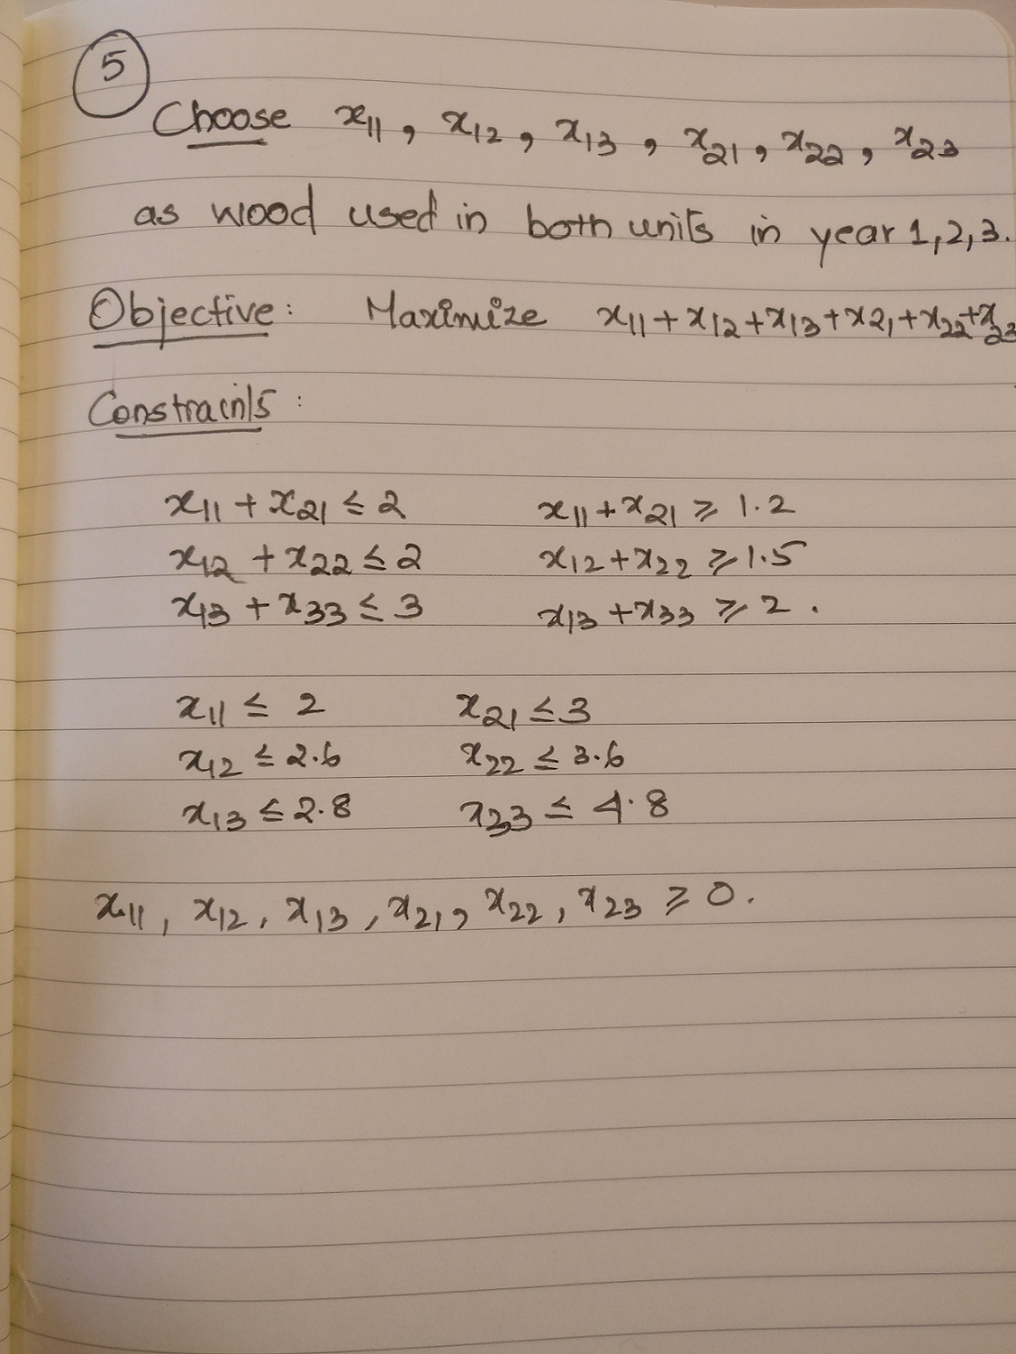 5
Choose x11, x12, x13, x21, x22, x23
as wood used in both units in year 1,2,3.
Objective: Maximize x11+x12+x13+x21+x22+x23
Constraints:
x11 + x21 ≤ 2 x11 + x21 ≥ 1.2
x12 + x22 ≤ 2 x12 + x22 ≥ 1.5
x13 + x33 ≤ 3 x13 + x33 ≥ 2.
x11 ≤ 2 x21 ≤ 3
x12 ≤ 2.6 x22 ≤ 3.6
x13 ≤ 2.8 x23 ≤ 4.8
x11, x12, x13, x21, x22, x23 ≥ 0.